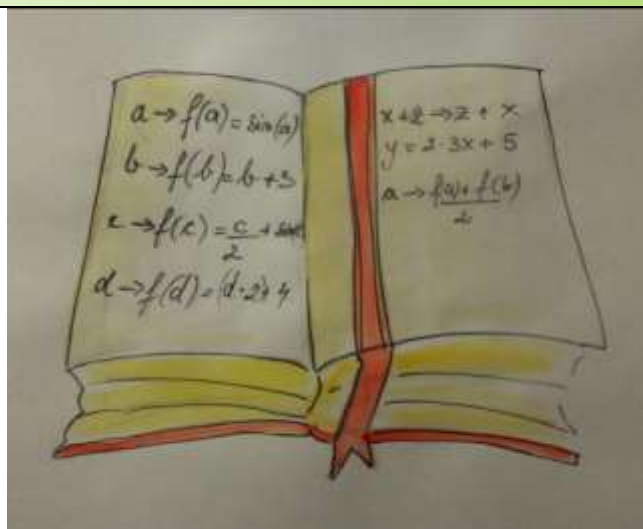 a → f(a) = sin(a)
b → f(b) = b + 3
c → f(c) = c/2 +
d → f(d) = (d · 2) + 4
x + z → z + x
y = 2 · 3x + 5
a → f(a) + f(b)/2